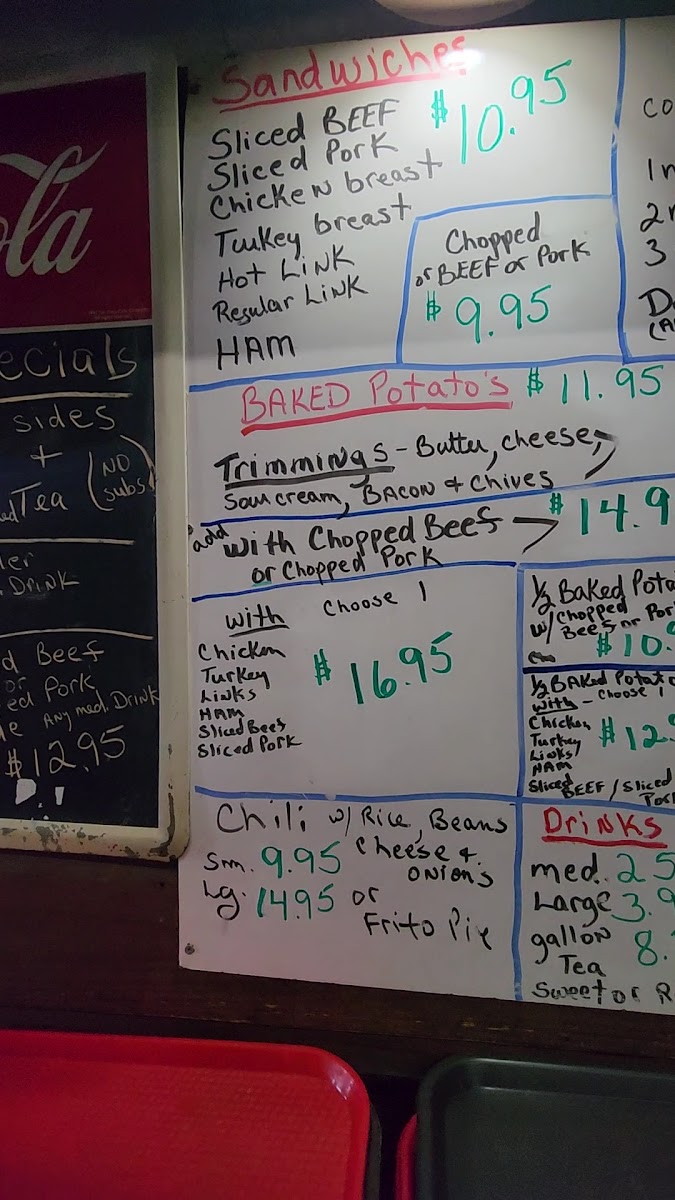 Sandwiches
Sliced BEEF
$10.95
Sliced Pork
Chicken breast
Turkey breast
Hot Link
Regular Link
HAM
Chopped
or BEEF or Pork
$9.95
BAKED Potato's $11.95
Trimmings - Butter, cheese,
Sour cream, BACON & Chives
add with Chopped Beef
or Chopped Pork
$14.9
with Choose 1
Chicken
Turkey
Links
HAM
Sliced Beef
Sliced Pork
$16.95
1/2 Baked Pota
w/ Chopped
Beef or Por
$10.
1/2 BAKED Potato
with - Choose 1
Chicken
Turkey
Links
HAM
Sliced
BEEF / Sliced
Pork
$12.
Chili w/ Rice, Beans
Cheese &
onions
Sm. 9.95
Lg. 14.95 or
Frito Pie
Drinks
med. 2.5
Large 3.9
gallon 8.
Tea
Sweet or R
co
1
2
3
D
la
ecials
sides
+
Tea (NO
subs.)
Drink
d Beef
or
ed Pork
Any med. Drink
$12.95